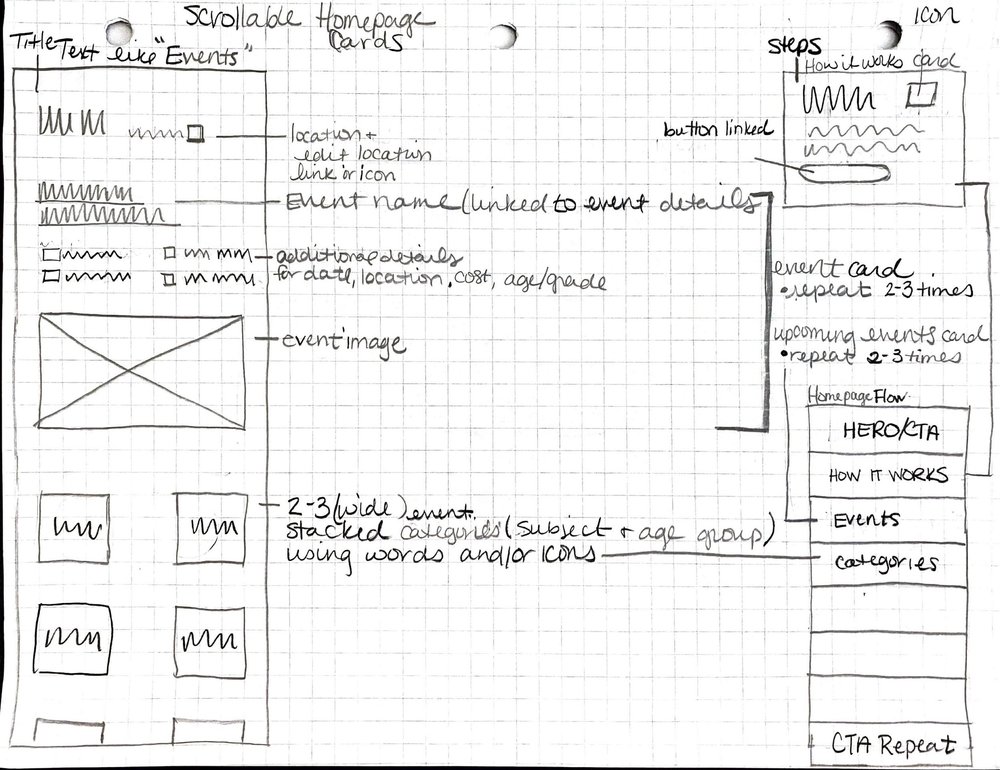 Scrollable Homepage
Cards
Title Text like "Events"
location +
edit location
link or icon
Event name (linked to event details
additional details
for date, location, cost, age/grade
event image
2-3 (wide) event
stacked categories (subject + age group)
using words and/or icons
icon
steps
How it works card
button linked
event card
• repeat 2-3 times
upcoming events card
• repeat 2-3 times
Homepage Flow
HERO/CTA
HOW IT WORKS
Events
categories
CTA Repeat